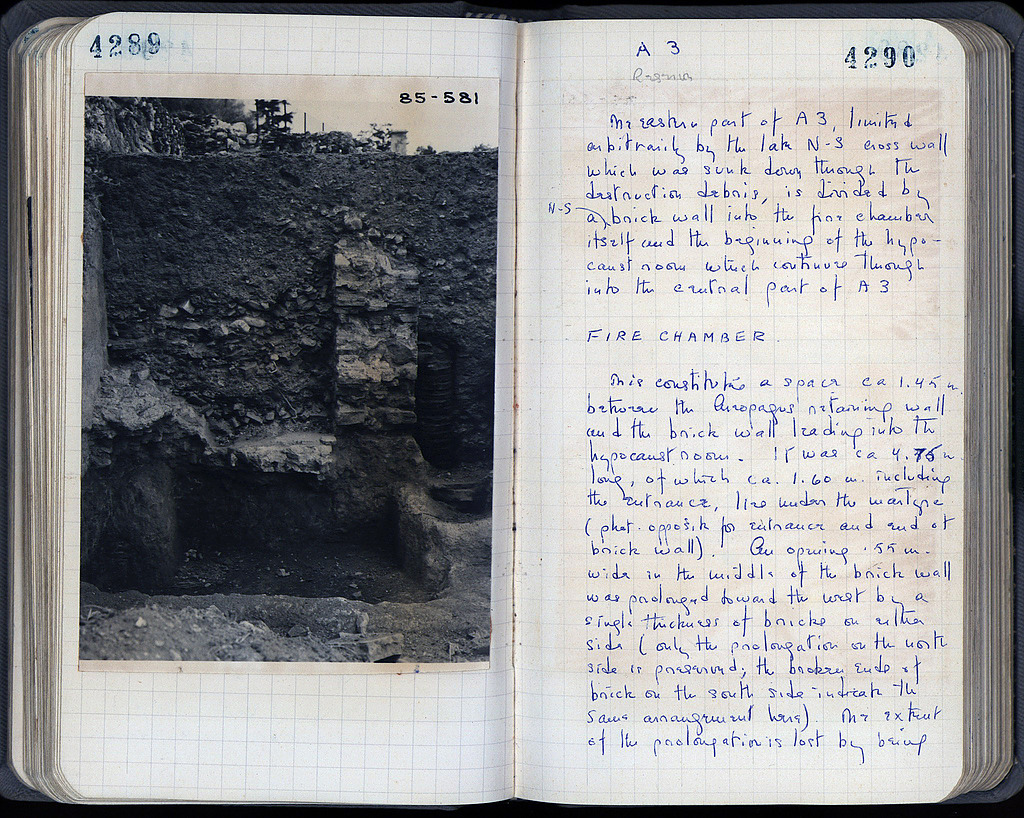 4289
85-581
A 3
4290
The eastern part of A 3, limited
arbitrarily by the late N-S cross wall
which was sunk down through the
destruction debris, is divided by
N-S
a brick wall into the fire chamber
itself and the beginning of the hypo-
caust room which continues through
into the central part of A 3
FIRE CHAMBER.
This constitutes a space ca 1.45 m
between the Areopagus retaining wall
and the brick wall leading into the
hypocaust room. It was ca 4.75 m.
long, of which ca. 1.60 m. including
the entrance, lies under the martyre
(phot. opposite for entrance and end of
brick wall). An opening .55 m.
wide in the middle of the brick wall
was prolonged toward the west by a
single thickness of bricks on either
side (only the prolongation on the north
side is preserved; the broken ends of
brick on the south side indicate the
same arrangement here). The extent
of the prolongation is lost by being